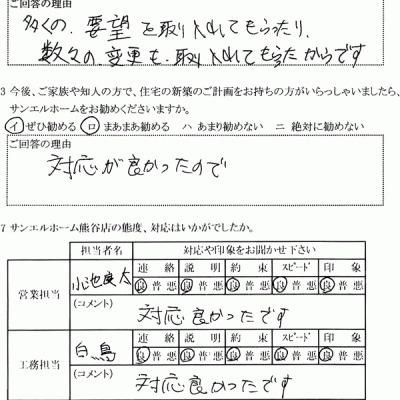 ご回答の理由
多くの、要望を取り入れてもらったり、
数々の変更も、取り入れてもらえたからです
3 今後、ご家族や知人の方で、住宅の新築のご計画をお持ちの方がいらっしゃいましたら、
サンエルホームをお勧めくださいますか。
イ ぜひ勧める ロ まあまあ勧める ハ あまり勧めない ニ 絶対に勧めない
ご回答の理由
対応が良かったので
7 サンエルホーム熊谷店の態度、対応はいかがでしたか。
担当者名 対応や印象をお聞かせ下さい
営業担当 小池良太 連絡 説明 約束 スピード 印象
良 普 悪 良 普 悪 良 普 悪 良 普 悪 良 普 悪
(コメント)
対応良かったです
工務担当 白鳥 連絡 説明 約束 スピード 印象
良 普 悪 良 普 悪 良 普 悪 良 普 悪 良 普 悪
(コメント)
対応良かったです